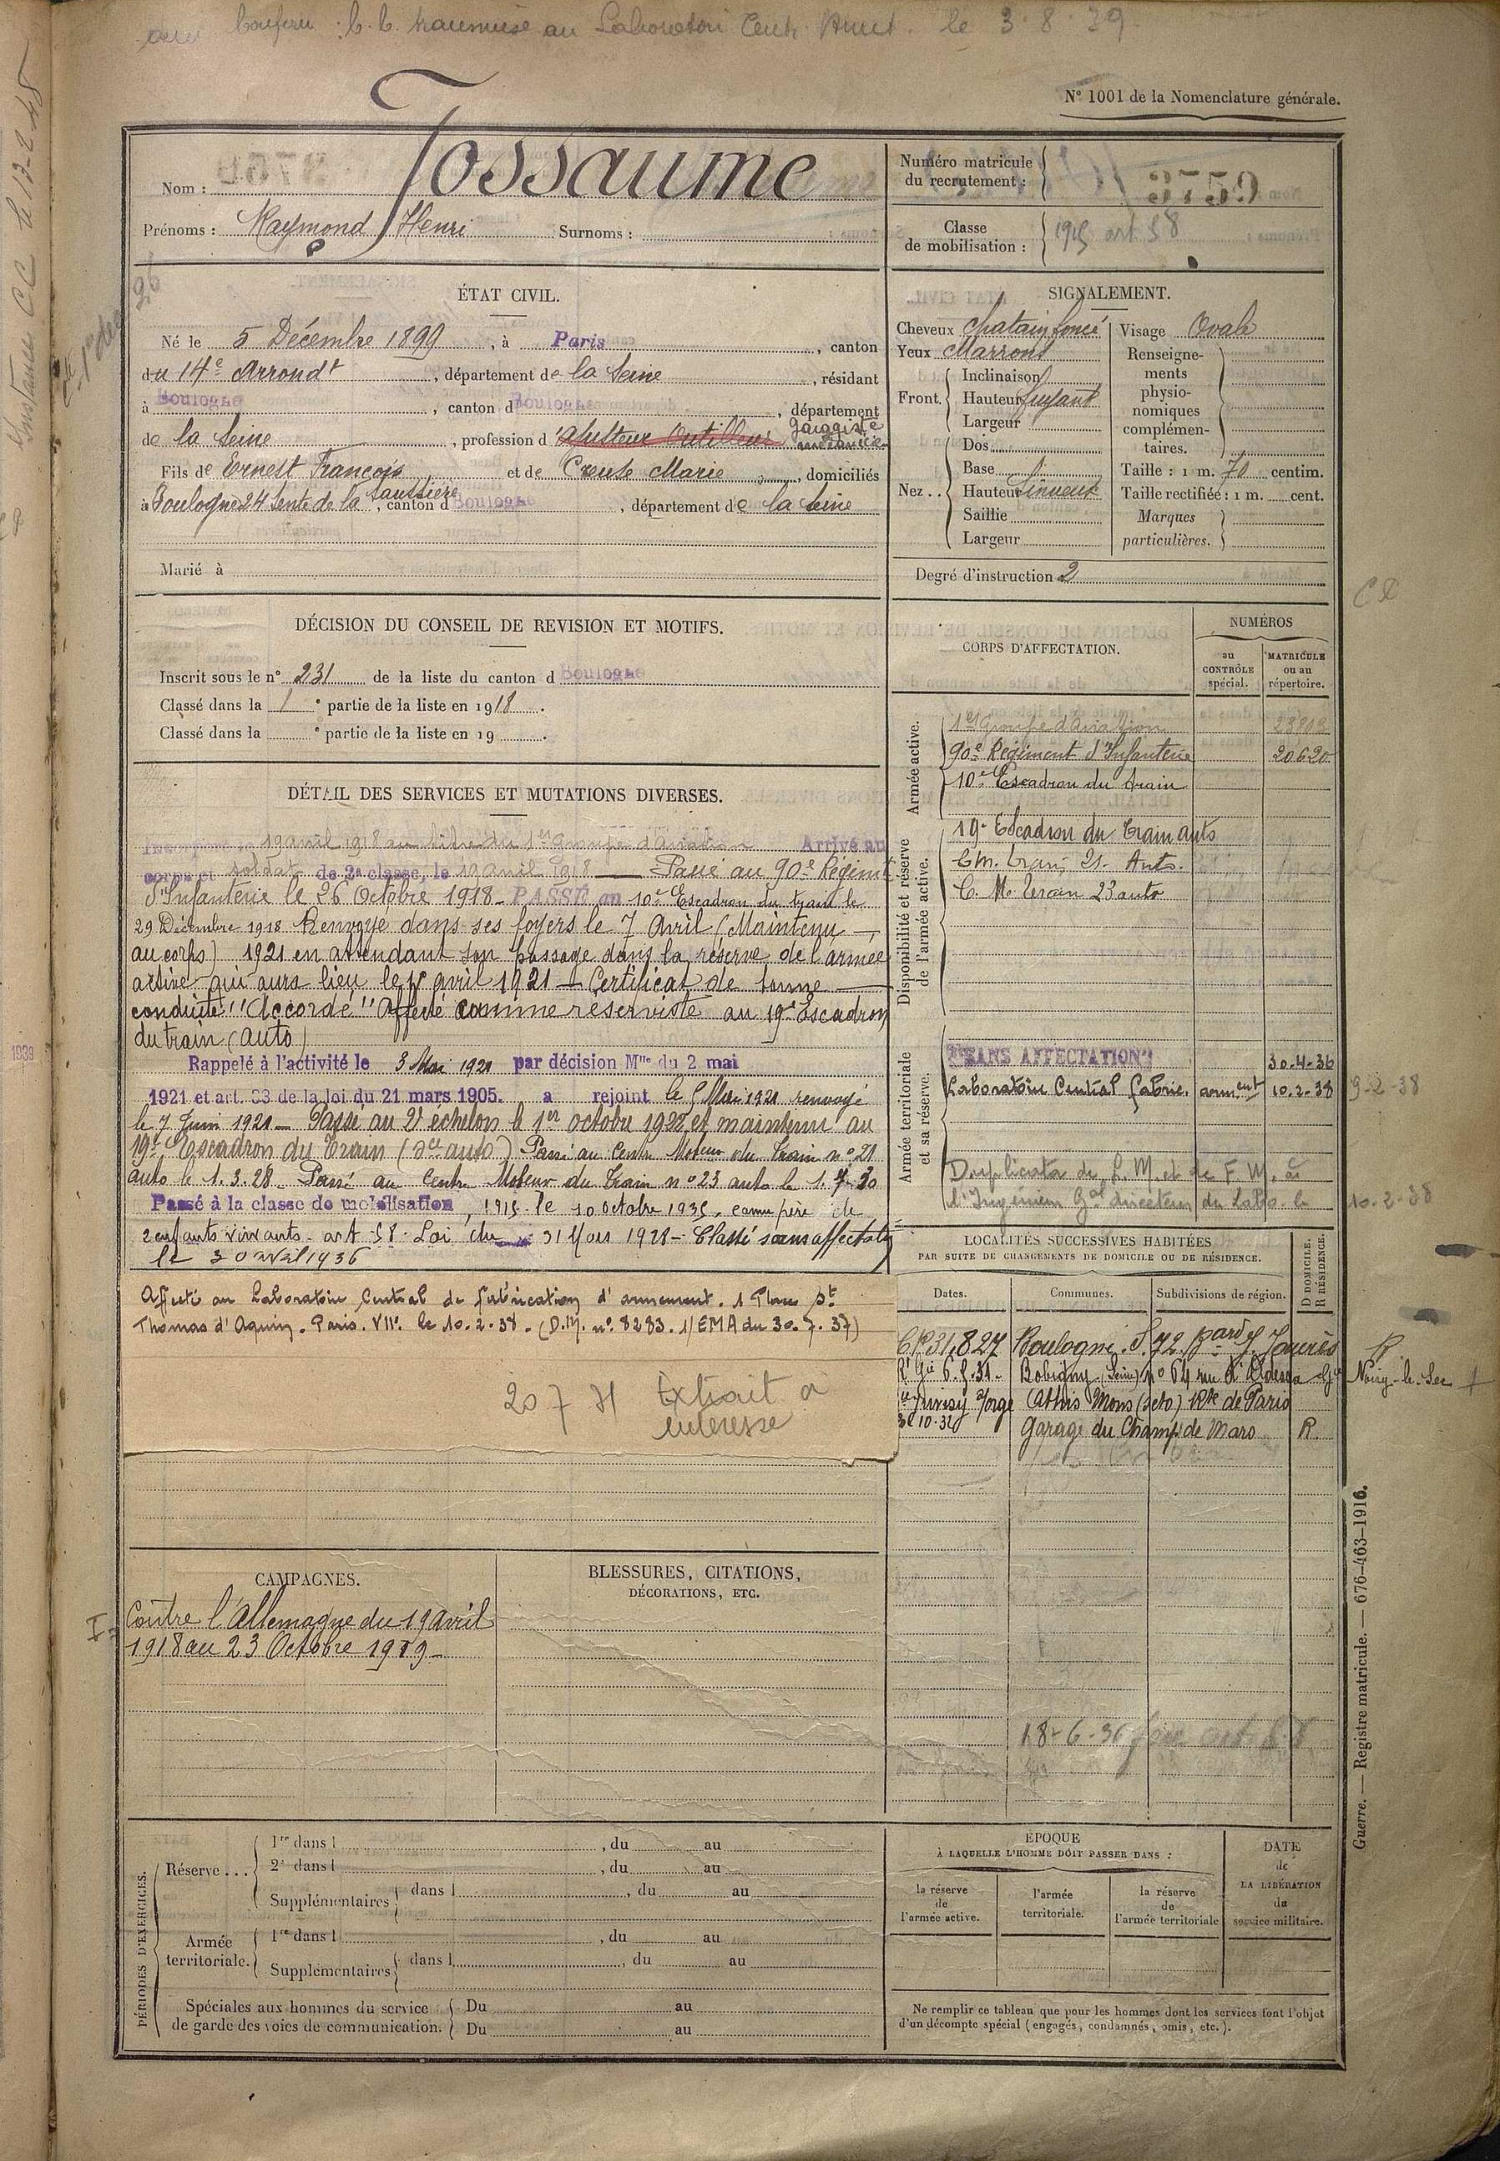 au Laboratoire Centr. Armt. le 3-8-39
N° 1001 de la Nomenclature générale.
Nom : Jossaume
Prénoms : Raymond Henri Surnoms :
Numéro matricule
du recrutement :
Classe
de mobilisation : 1915 art 58
ÉTAT CIVIL.
Né le 5 Décembre 1899, à Paris, canton
du 14e Arrondt, département de la Seine, résidant
à Boulogne, canton d Boulogne, département
de la Seine, profession d'Ajusteur Outilleur garagiste
mécanicien
Fils de Ernest François et de Creuse Marie, domiciliés
à Boulogne 24 Sente de la Saussière, canton d Boulogne, département de la Seine
Marié à
SIGNALEMENT.
Cheveux chatain foncé
Yeux Marrons
Front. Inclinaison
Hauteur fuyant
Largeur
Nez .. Dos
Base
Hauteur Sinueux
Saillie
Largeur
Visage Ovale
Renseigne-
ments
physio-
nomiques
complémen-
taires.
Taille : 1 m. 70 centim.
Taille rectifiée : 1 m. cent.
Marques
particulières.
Degré d'instruction 2
DÉCISION DU CONSEIL DE REVISION ET MOTIFS.
Inscrit sous le n° 231 de la liste du canton d Boulogne
Classé dans la 1 e partie de la liste en 1918.
Classé dans la e partie de la liste en 19 .
CORPS D'AFFECTATION.
NUMÉROS
au
CONTRÔLE
spécial.
MATRICULE
ou au
répertoire.
Armée active.
1er Groupe d'aviation
90e Régiment d'Infanterie 20620
10e Escadron du train
Disponibilité et réserve
de l'armée active.
19e Escadron du train auts
C.M. train 21. Auto.
C. M. Train 23 auto
Armée territoriale
et sa réserve.
SANS AFFECTATION 30-4-36
Laboratoire Central Fabric. armement 10-2-38 9-2-38
Duplicata de L. M. et de F. M. à
l'Ingénieur Gal directeur du Labo. le 10-2-38
DÉTAIL DES SERVICES ET MUTATIONS DIVERSES.
19 avril 1918 au titre du 1er Groupe d'aviation Arrivé au
corps et soldat de 2e classe, le 19 avril 1918 — Passé au 90e Régiment
d'Infanterie le 26 Octobre 1918 - PASSÉ au 10e Escadron du train le
29 Décembre 1918 Renvoyé dans ses foyers le 7 Avril (Maintenu —
au corps) 1921 en attendant son passage dans la réserve de l'armée
active qui aura lieu le 15 avril 1921 — Certificat de bonne —
conduite "Accordé" Affecté comme réserviste au 19e Escadron
du train (auto)
Rappelé à l'activité le 3 Mai 1921 par décision Mlle du 2 mai
1921 et art. 33 de la loi du 21 mars 1905. a rejoint le 5 Mai 1921 renvoyé
le 7 Juin 1921 — Passé au 2e échelon le 1er octobre 1922 et maintenu au
19e Escadron du Train (son auto) Passé au Centre Moteur du Train n° 21
auto le 1.3.28 — Passé au Centre Moteur du Train n° 23 auto le 1.7.30
Passé à la classe de mobilisation, 1915 le 10 octobre 1935, comme père de
2 enfants vivants - art 58 Loi du 31 Mars 1928 — Classé sans affectation
le 30 avril 1936
Affecté au Laboratoire Central de fabrication d'armement. 1 Place St
Thomas d'Aquin. Paris. VIIe. le 10.2.38. (D.M. n° 8283. 1/EMA du 30.7.37)
20 7 Extrait à
intéressé
LOCALITÉS SUCCESSIVES HABITÉES
PAR SUITE DE CHANGEMENTS DE DOMICILE OU DE RÉSIDENCE.
Dates. Communes. Subdivisions de région. D DOMICILE. R RÉSIDENCE.
Boulogne. S. 72. Bard J. Jaurès
6.5.31 - Bobigny (Seine) n° 64 rue Noisy-le-Sec
Juvisy s/orge Athis Mons (S et O) Rte de Paris
10-32 Garage du Champ de Mars R.
18-6-36
CAMPAGNES.
Contre l'Allemagne du 19 Avril
1918 au 23 Octobre 1919 -
BLESSURES, CITATIONS,
DÉCORATIONS, ETC.
PÉRIODES D'EXERCICES.
Réserve ... 1re dans l , du au
2e dans l , du au
Supplémentaires dans l , du au
Armée
territoriale. 1re dans l , du au
Supplémentaires dans l , du au
Spéciales aux hommes du service
de garde des voies de communication. Du au
Du au
ÉPOQUE
À LAQUELLE L'HOMME DOIT PASSER DANS :
la réserve
de
l'armée active.
l'armée
territoriale.
la réserve
de
l'armée territoriale
DATE
de
LA LIBÉRATION
du
service militaire.
Ne remplir ce tableau que pour les hommes dont les services font l'objet
d'un décompte spécial (engagés, condamnés, omis, etc.).
Guerre. — Registre matricule. — 676-463-1916.
1939